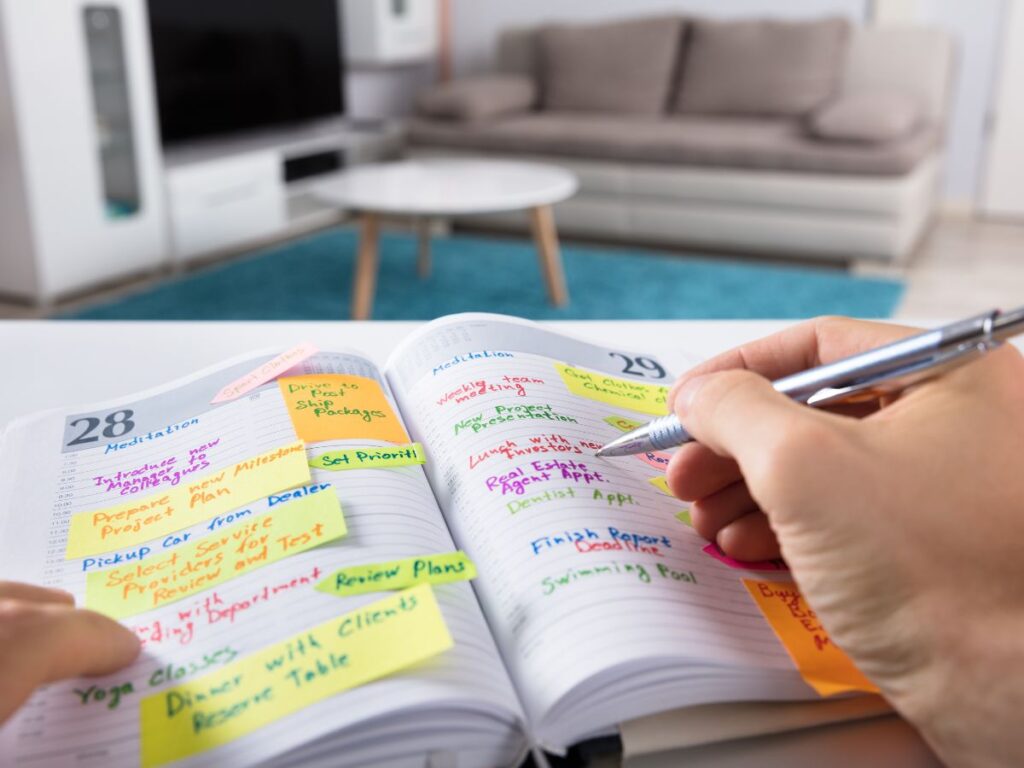 28
Sport Clothes
Meditation
Drive to
Post
Ship
Packages
Introduce new
Manager to
colleagues
Set Prioriti
Prepare new Milestone
Project Plan
Pickup Car from Dealer
Select Service
Providers for
Review and Test
Review Plans
with
with Department
Yoga Classes
Dinner with Clients
Reserve Table
29
Meditation
Weekly team
meeting
New Project
Presentation
Lunch with new
Investors
Real Estate
Agent Appt.
Dentist Appt.
Finish Report
Deadline
Swimming Pool
Clothes for
Chemical